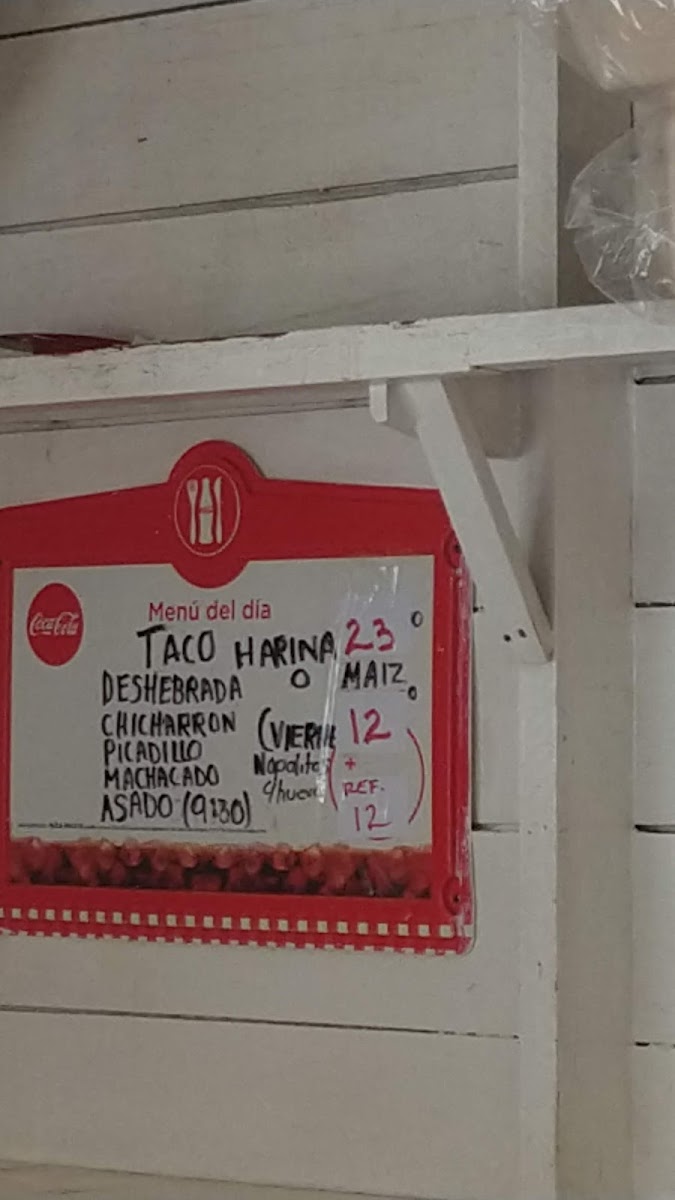 Coca-Cola
Menú del día
TACO HARINA 23°
DESHEBRADA O MAIZ
CHICHARRON (VIERNE 12°
PICADILLO Nopalitos +
MACHACADO c/huevo REF.
ASADO (9:30) 12